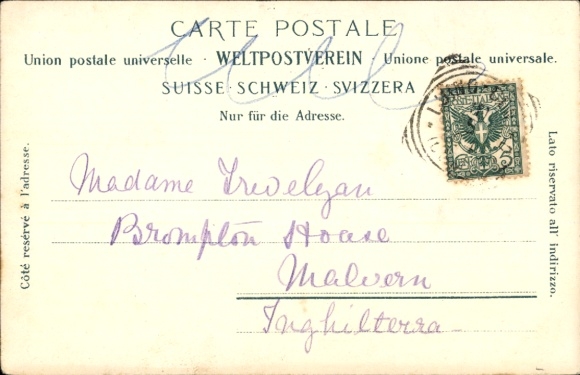 CARTE POSTALE
Union postale universelle · WELTPOSTVEREIN · Unione postale universale.
SUISSE · SCHWEIZ · SVIZZERA
Nur für die Adresse.
Côté resérvé à l'adresse.
Lato riservato all' indirizzo.
Madame Trevelyan
Brompton House
Malvern
Inghilterra